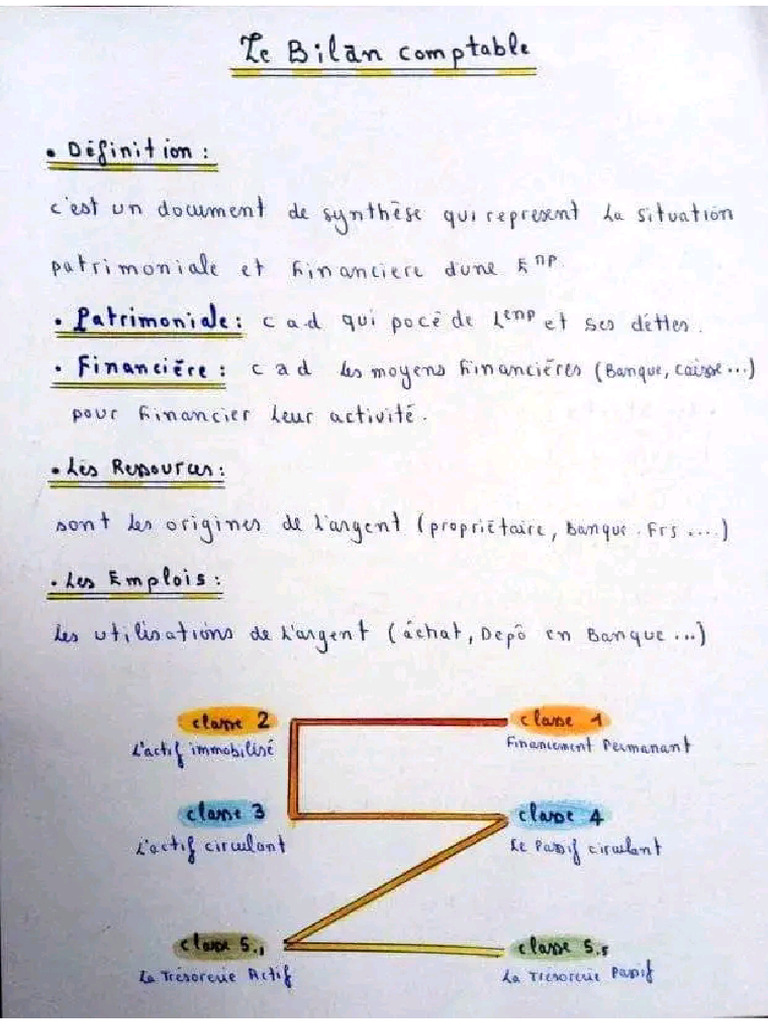 Le Bilan comptable
• Définition :
c'est un document de synthèse qui represent la situation
patrimoniale et financiere d'une Enp.
• Patrimoniale : c a d qui pocé de l'enp et ses déttes.
• Financière : c a d les moyens financiéres (Banque, caisse...)
pour financier leur activité.
• Les Ressources :
sont les origines de l'argent (propriétaire, Banque. Frs ....)
• Les Emplois :
les utilisations de l'argent (áchat, Depô en Banque ...)
classe 2 classe 1
L'actif immobilisé Financement Permanant
classe 3 classe 4
L'actif circulant Le Passif circulant
classe 5.1 classe 5.5
La Trésorerie Actif La Trésorerie Passif